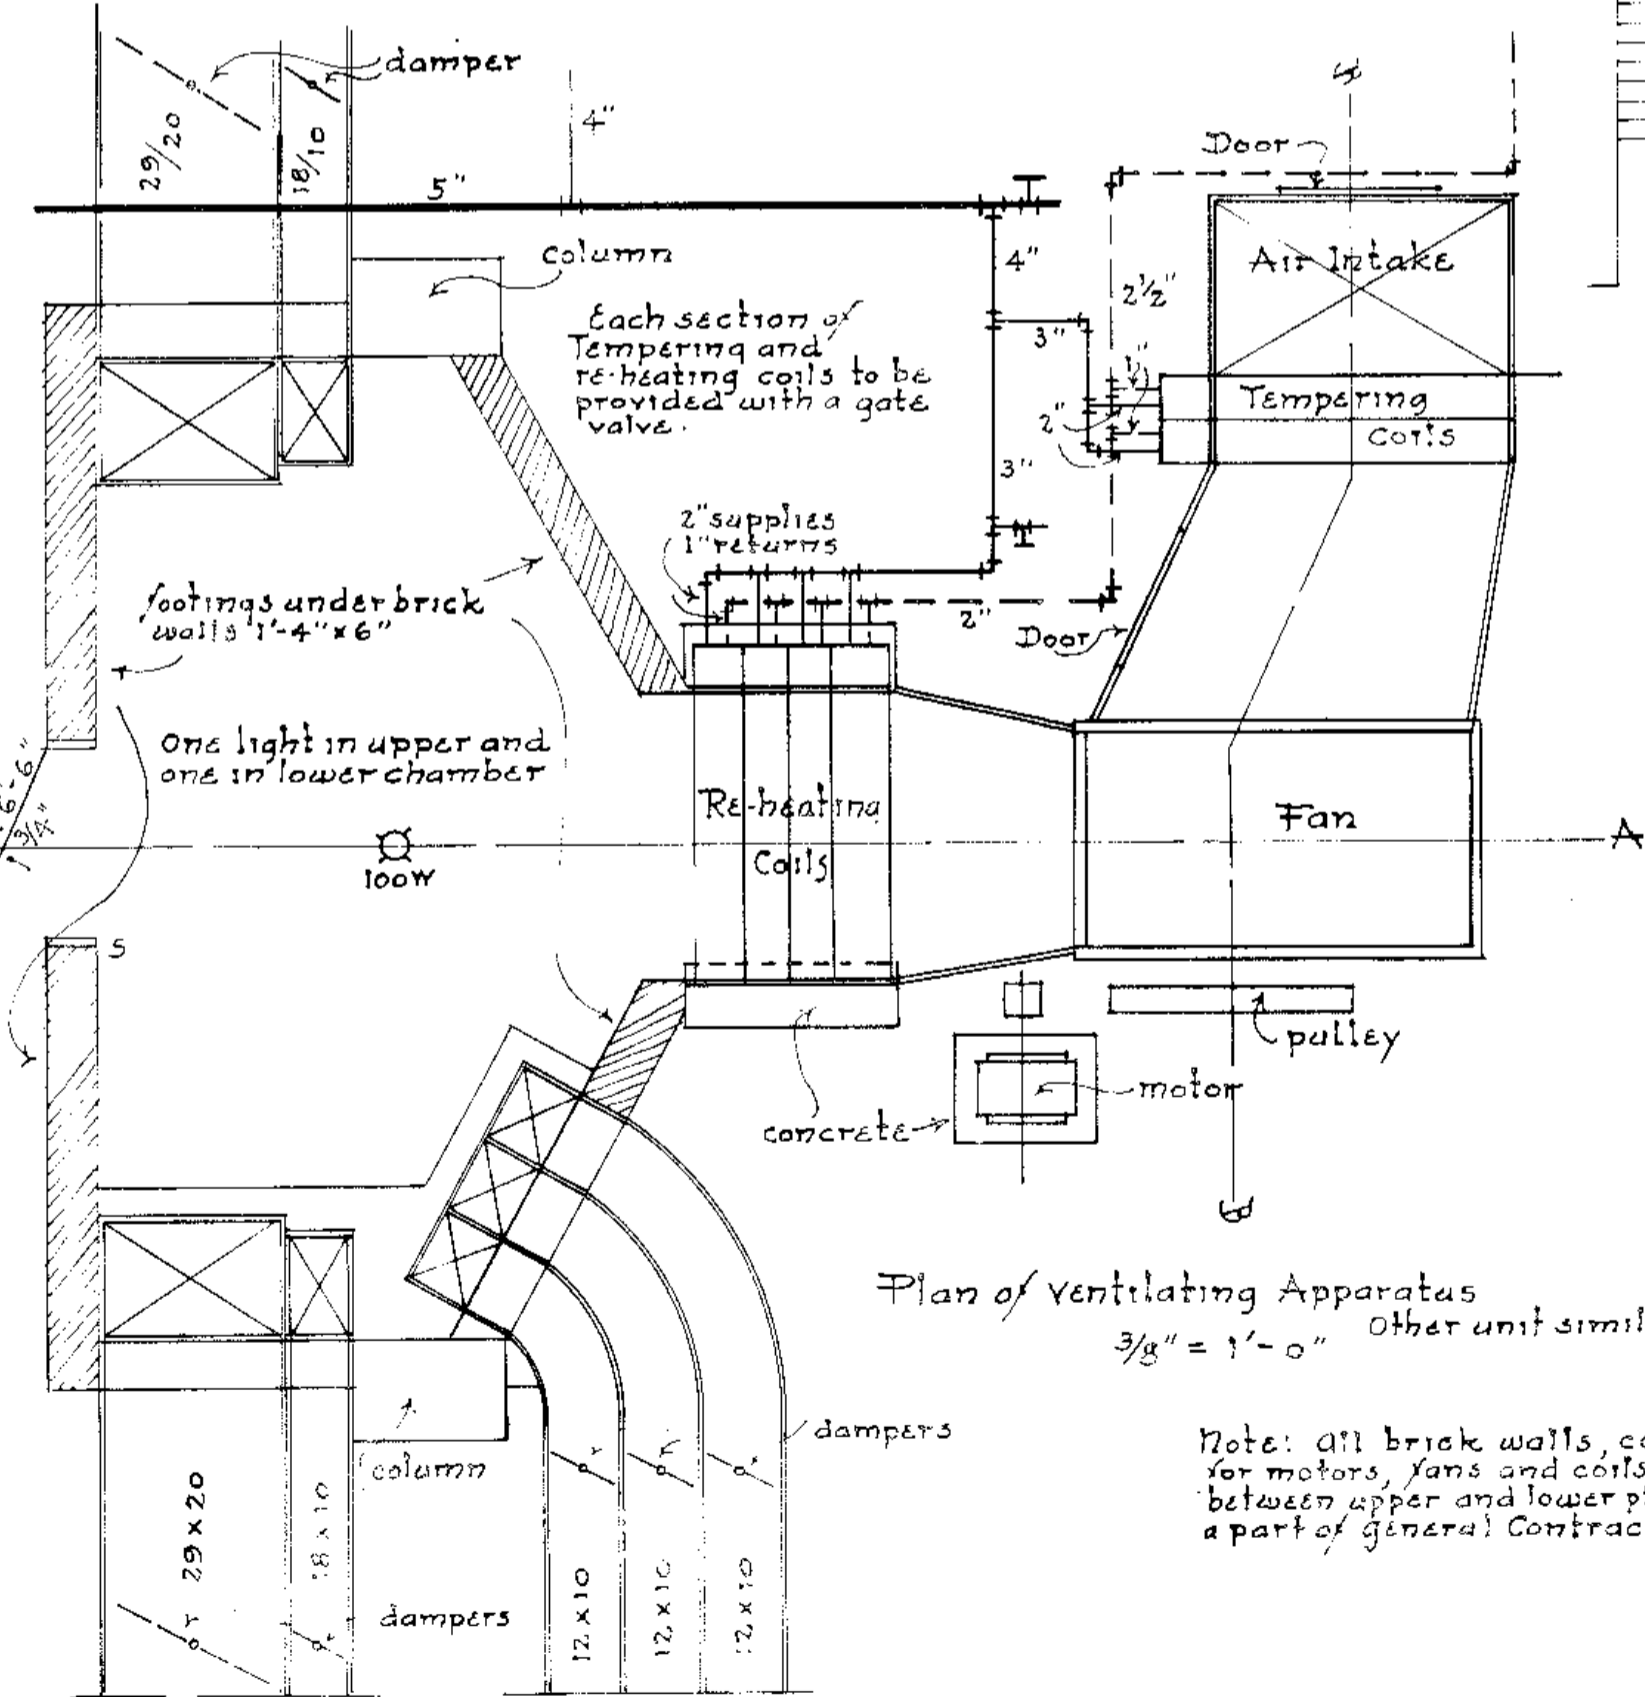 damper
29/20
18/10
4"
5"
Door
column
4"
Air Intake
2½"
Each section of
Tempering and
re-heating coils to be
provided with a gate
valve.
3"
1"
Tempering
coils
2"
3"
2" supplies
1" returns
footings under brick
walls 1'-4" x 6"
2"
Door
One light in upper and
one in lower chamber
6'-6"
1 3/4"
Re-heating
Coils
Fan
A
100W
S
pulley
motor
concrete
B
Plan of Ventilating Apparatus
3/8" = 1'-0"
Other unit simil
dampers
column
Note: All brick walls, co
for motors, fans and coils
between upper and lower pl
a part of general Contrac
29 x 20
18 x 10
12 x 10
12 x 10
12 x 10
dampers